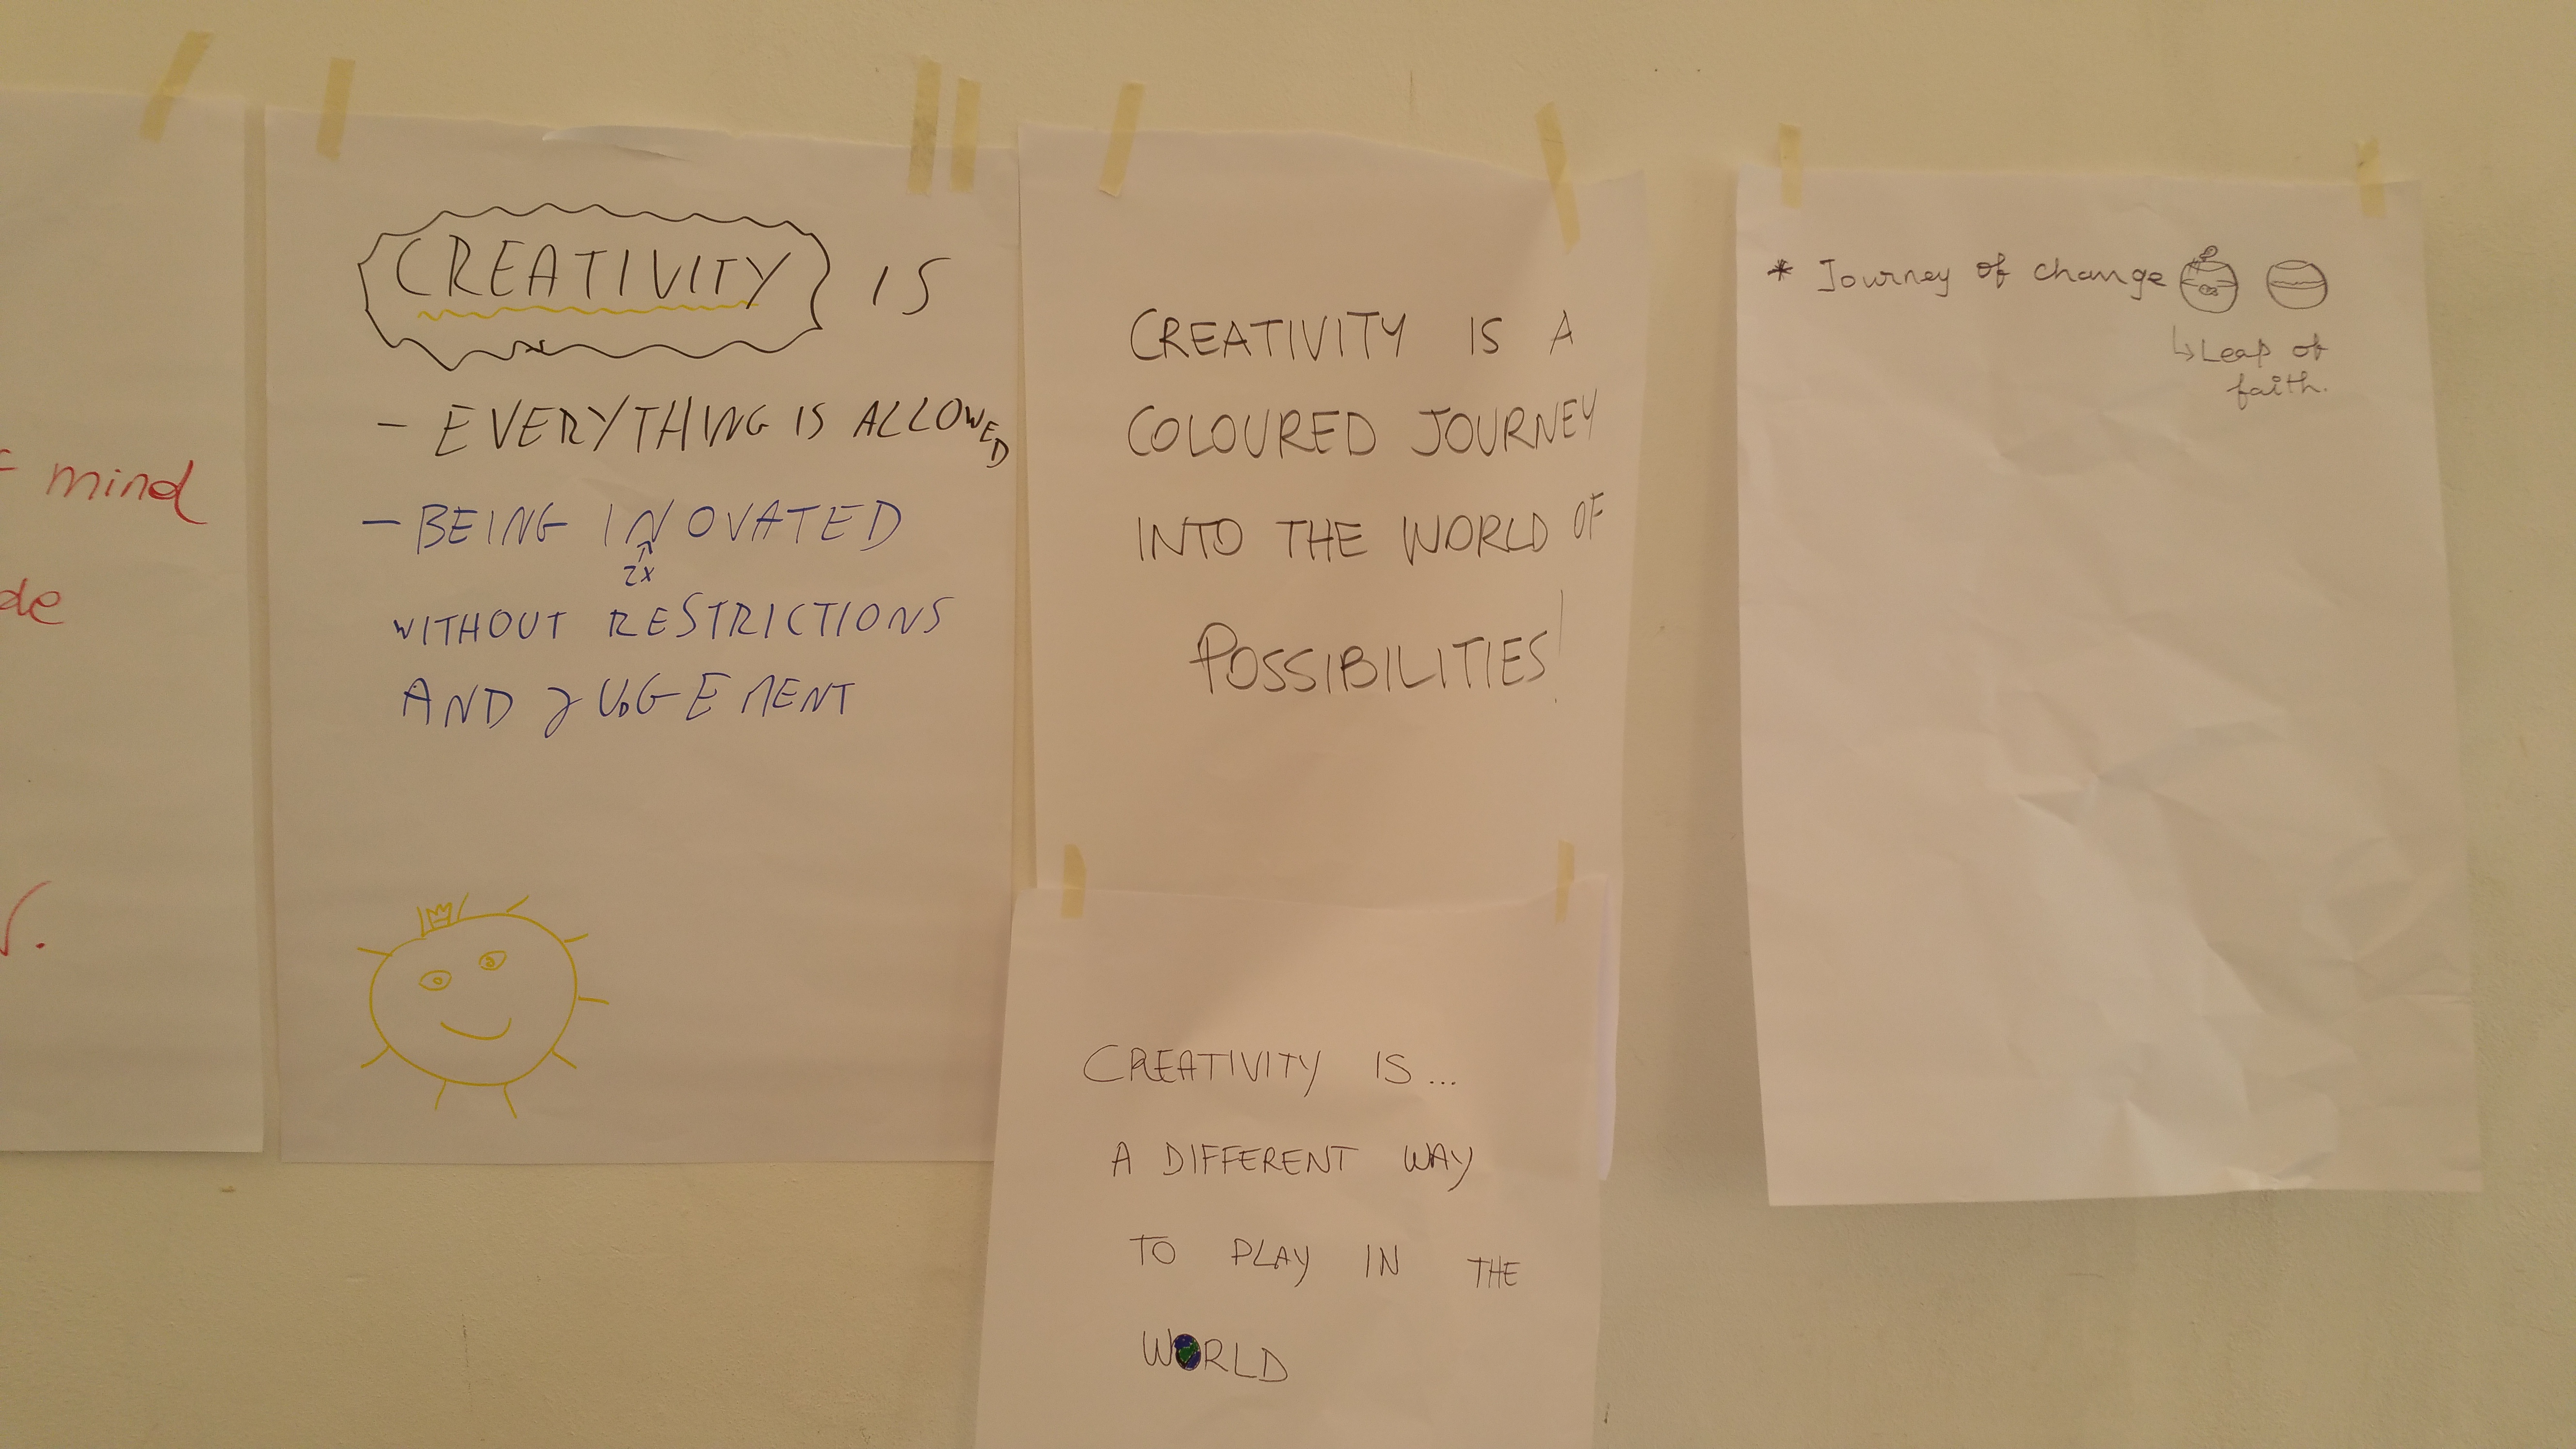 mind
CREATIVITY IS
- EVERYTHING IS ALLOWED
- BEING INOVATED
2x
WITHOUT RESTRICTIONS
AND JUDGEMENT
CREATIVITY IS A
COLOURED JOURNEY
INTO THE WORLD OF
POSSIBILITIES!
CREATIVITY IS...
A DIFFERENT WAY
TO PLAY IN THE
WORLD
* Journey of change
↳ Leap of
faith.